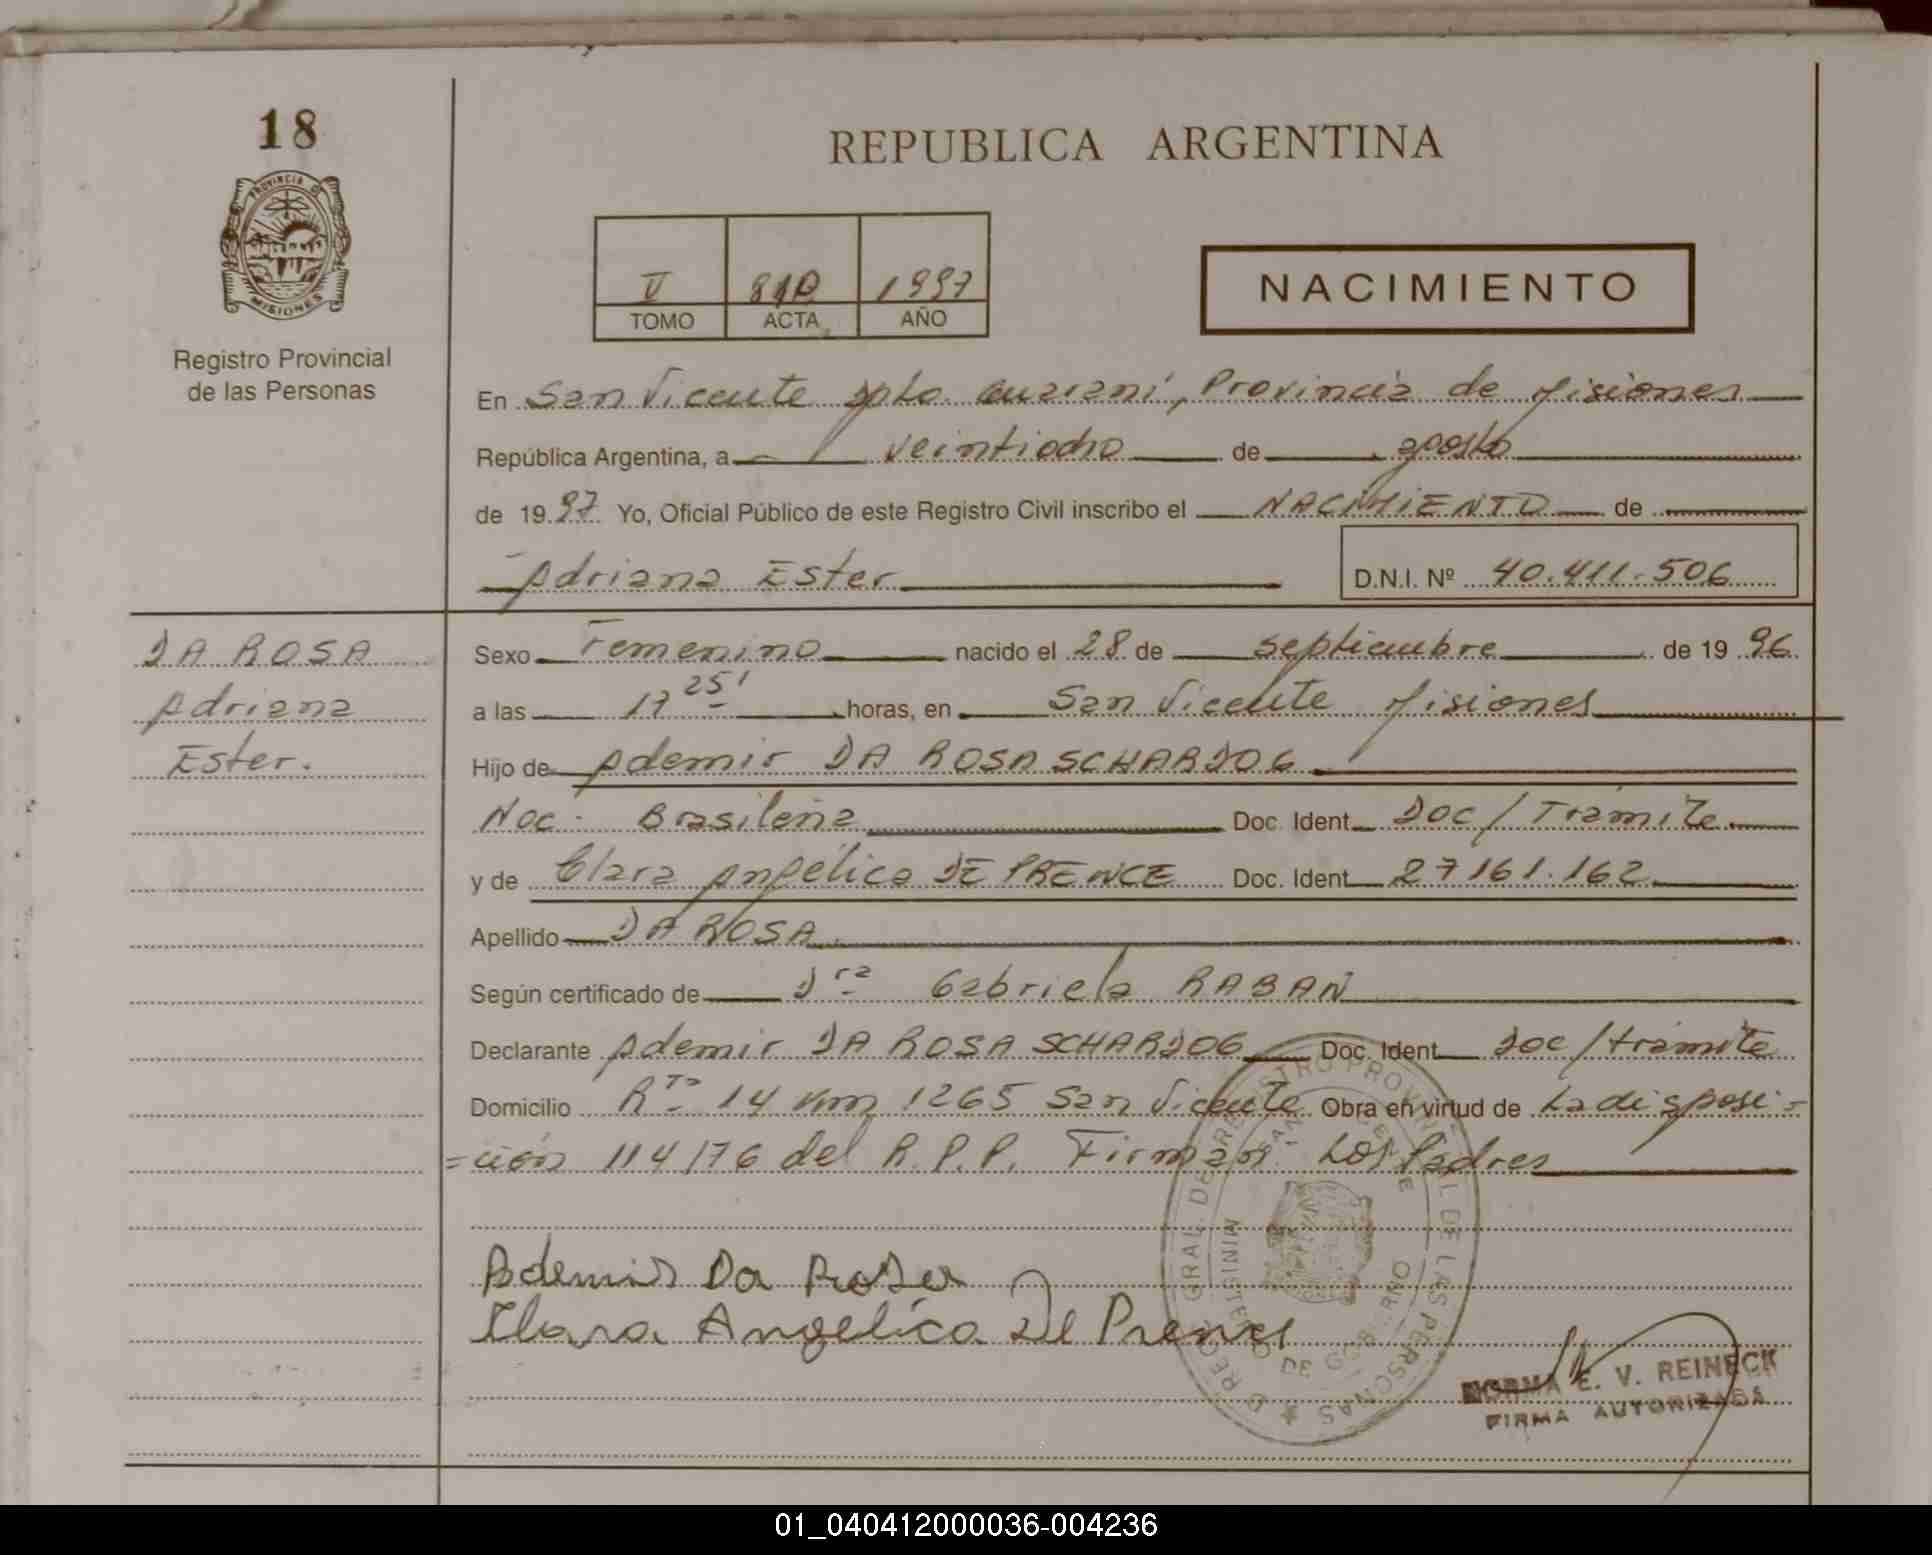 18
PROVINCIA DE
MISIONES
Registro Provincial
de las Personas
REPUBLICA ARGENTINA
V 1997
TOMO ACTA AÑO
NACIMIENTO
En San Vicente Dpto Guaraní, Provincia de Misiones
República Argentina, a veintiocho de agosto
de 1997 Yo, Oficial Público de este Registro Civil inscribo el NACIMIENTO de
Adriana Ester D.N.I. Nº 40.411.506
DA ROSA
Adriana
Ester.
Sexo Femenino nacido el 28 de septiembre de 1996
a las 17 25' horas, en San Vicente Misiones
Hijo de Ademir DA ROSA SCHARDOG
Nac. Brasileña Doc. Ident. DOC/Trámite
y de Clara Angélica DE PRENCE Doc. Ident. 27161.162
Apellido DA ROSA
Según certificado de Dra Gabriela RABAN
Declarante Ademir DA ROSA SCHARDOG Doc. Ident. Doc/trámite
Domicilio Rta 14 km 1265 San Vicente Obra en virtud de La disposi-
=ción 114/76 del R.P.P. Firman: Los Padres
Ademir Da Rosa
Clara Angelica De Prence
REGISTRO PROVINCIAL DE LAS PERSONAS
SAN VICENTE
DE GOBIERNO
NORMA E. V. REINECK
FIRMA AUTORIZADA
01_040412000036-004236